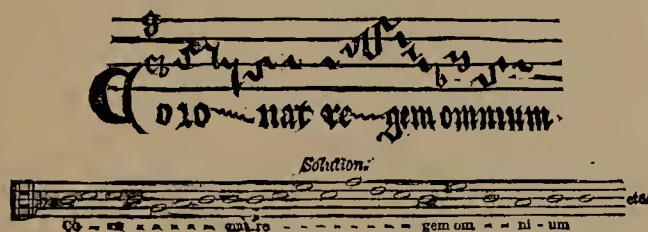 Coro--nat re--gem omnium.
Solution.
Co - ro - - - - - nat re - - - - - - - - gem om - - ni - um etc.